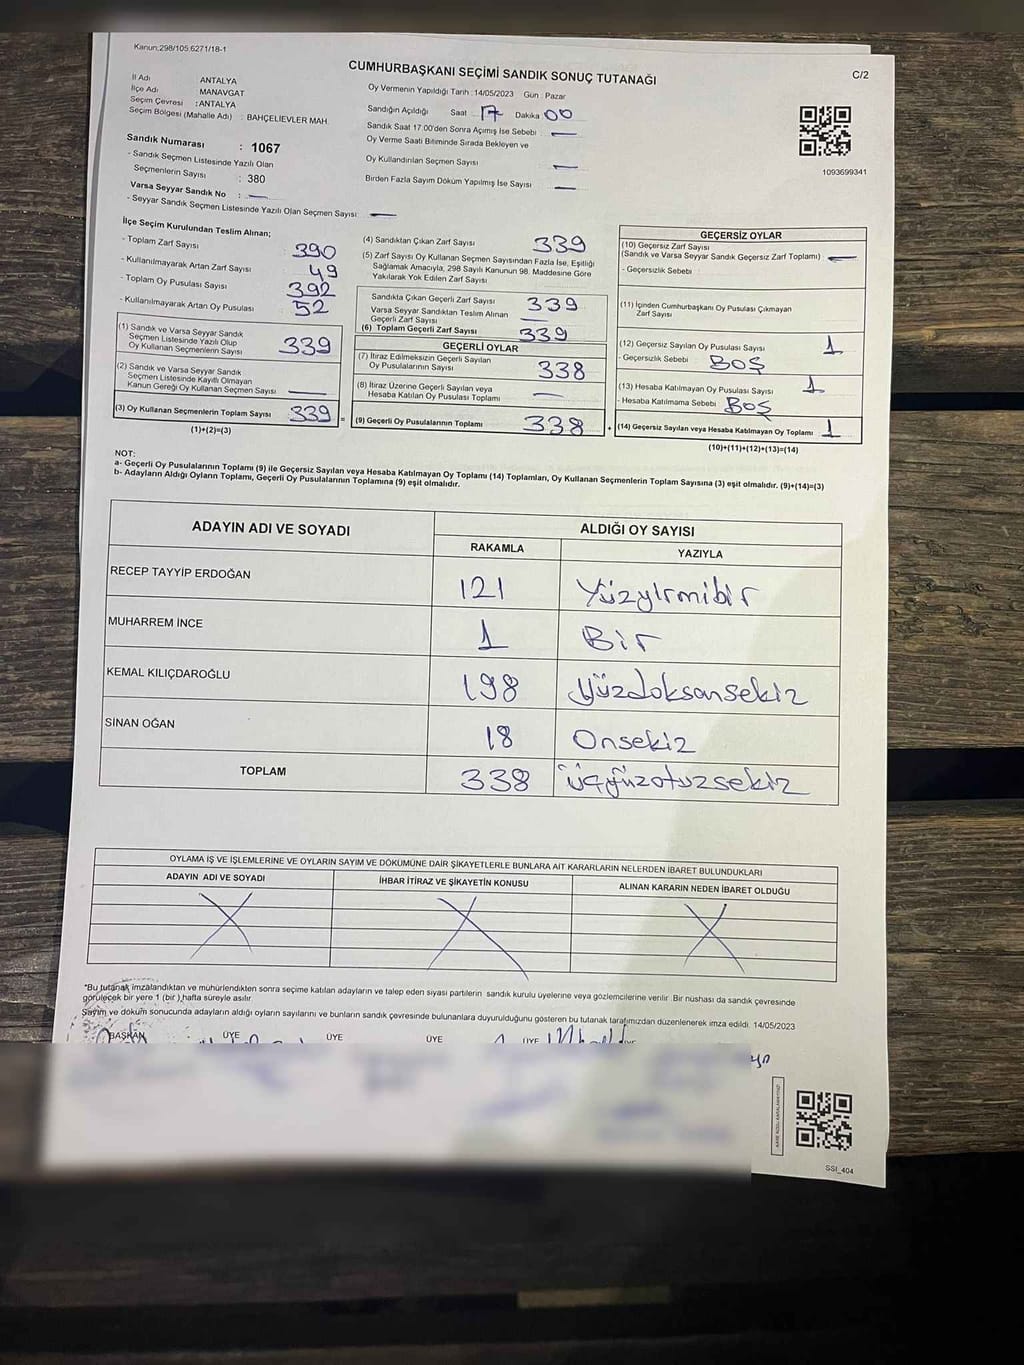 Kanun:298/105,6271/18-1
C/2
CUMHURBAŞKANI SEÇİMİ SANDIK SONUÇ TUTANAĞI
İl Adı ANTALYA
İlçe Adı MANAVGAT
Seçim Çevresi : ANTALYA
Seçim Bölgesi (Mahalle Adı) : BAHÇELİEVLER MAH.
Oy Vermenin Yapıldığı Tarih :14/05/2023 Gün : Pazar
Sandığın Açıldığı Saat 17 Dakika 00
Sandık Saat 17.00'den Sonra Açımış İse Sebebi : —
Oy Verme Saati Bitiminde Sırada Bekleyen ve
Oy Kullandırılan Seçmen Sayısı —
Birden Fazla Sayım Döküm Yapılmış İse Sayısı —
1093699341
Sandık Numarası : 1067
- Sandık Seçmen Listesinde Yazılı Olan
Seçmenlerin Sayısı : 380
Varsa Seyyar Sandık No : —
- Seyyar Sandık Seçmen Listesinde Yazılı Olan Seçmen Sayısı —
İlçe Seçim Kurulundan Teslim Alınan;
- Toplam Zarf Sayısı 390
- Kullanılmayarak Artan Zarf Sayısı 49
- Toplam Oy Pusulası Sayısı 392
- Kullanılmayarak Artan Oy Pusulası 52
(1) Sandık ve Varsa Seyyar Sandık
Seçmen Listesinde Yazılı Olup
Oy Kullanan Seçmenlerin Sayısı 339
(2) Sandık ve Varsa Seyyar Sandık
Seçmen Listesinde Kayıtlı Olmayan
Kanun Gereği Oy Kullanan Seçmen Sayısı —
(3) Oy Kullanan Seçmenlerin Toplam Sayısı 339 =
(1)+(2)=(3)
(4) Sandıktan Çıkan Zarf Sayısı 339
(5) Zarf Sayısı Oy Kullanan Seçmen Sayısından Fazla İse, Eşitliği
Sağlamak Amacıyla, 298 Sayılı Kanunun 98. Maddesine Göre
Yakılarak Yok Edilen Zarf Sayısı
Sandıkta Çıkan Geçerli Zarf Sayısı 339
Varsa Seyyar Sandıktan Teslim Alınan
Geçerli Zarf Sayısı —
(6) Toplam Geçerli Zarf Sayısı 339
GEÇERLİ OYLAR
(7) İtiraz Edilmeksizin Geçerli Sayılan
Oy Pusulalarının Sayısı 338
(8) İtiraz Üzerine Geçerli Sayılan veya
Hesaba Katılan Oy Pusulası Toplamı —
(9) Geçerli Oy Pusulalarının Toplamı 338 +
GEÇERSİZ OYLAR
(10) Geçersiz Zarf Sayısı
(Sandık ve Varsa Seyyar Sandık Geçersiz Zarf Toplamı) —
- Geçersizlik Sebebi :
(11) İçinden Cumhurbaşkanı Oy Pusulası Çıkmayan
Zarf Sayısı
(12) Geçersiz Sayılan Oy Pusulası Sayısı 1
- Geçersizlik Sebebi : BOŞ
(13) Hesaba Katılmayan Oy Pusulası Sayısı 1
- Hesaba Katılmama Sebebi : BOŞ
(14) Geçersiz Sayılan veya Hesaba Katılmayan Oy Toplamı 1
(10)+(11)+(12)+(13)=(14)
NOT:
a- Geçerli Oy Pusulalarının Toplamı (9) ile Geçersiz Sayılan veya Hesaba Katılmayan Oy Toplamı (14) Toplamları, Oy Kullanan Seçmenlerin Toplam Sayısına (3) eşit olmalıdır. (9)+(14)=(3)
b- Adayların Aldığı Oyların Toplamı, Geçerli Oy Pusulalarının Toplamına (9) eşit olmalıdır.
ADAYIN ADI VE SOYADI ALDIĞI OY SAYISI
RAKAMLA YAZIYLA
RECEP TAYYİP ERDOĞAN 121 Yüzyirmibir
MUHARREM İNCE 1 Bir
KEMAL KILIÇDAROĞLU 198 Yüzdoksansekiz
SİNAN OĞAN 18 Onsekiz
TOPLAM 338 üçyüzotuzsekiz
OYLAMA İŞ VE İŞLEMLERİNE VE OYLARIN SAYIM VE DÖKÜMÜNE DAİR ŞİKAYETLERLE BUNLARA AİT KARARLARIN NELERDEN İBARET BULUNDUKLARI
ADAYIN ADI VE SOYADI İHBAR İTİRAZ VE ŞİKAYETİN KONUSU ALINAN KARARIN NEDEN İBARET OLDUĞU
*Bu tutanak imzalandıktan ve mühürlendikten sonra seçime katılan adayların ve talep eden siyasi partilerin sandık kurulu üyelerine veya gözlemcilerine verilir. Bir nüshası da sandık çevresinde
görülecek bir yere 1 (bir) hafta süreyle asılır.
Sayım ve döküm sonucunda adayların aldığı oyların sayılarını ve bunların sandık çevresinde bulunanlara duyurulduğunu gösteren bu tutanak tarafımızdan düzenlenerek imza edildi. 14/05/2023
BAŞKAN ÜYE ÜYE ÜYE ÜYE
SSI_404